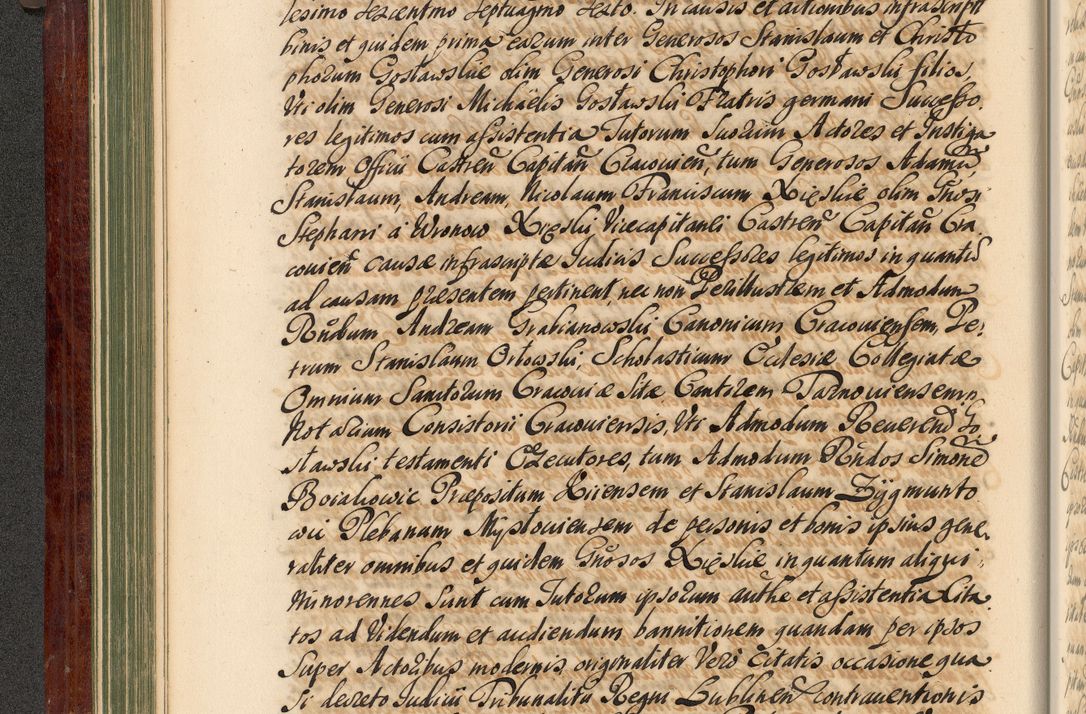 lesimo sexcentmo septuagmo sexto. In causis et actionibus infrascript
binis et quidem prima earum inter Generosos Stanislaum et Christo
phorum Gosławskie olim Generosi Christophori Gosławski filios,
Uti olim Generosi Michaëlis Gosławski Fratris germani Successo,
res legitimos cum assistentia Tutorum suorum Actores et Instiga
torem Officii Castreñ Capitañ Cracouieñ, tum Generosos Adamũ
Stanislaum, Andream, Nicolaum Franciscum Xięskie olim Gñosi
Stephani à Wronow Xięski Vicecapitanei Castreñ Capitañ Cra,
couieñ causæ infrascriptæ Judicis Successores legitimos in quantũ
ad causam præsentem pertinent, nec non Perillustrem et Admodum
Rñdum Andream Grabianowski, Canonicum Cracouiensem, Pe,
trum Stanislaum Orłowski, Scholasticum Ecclesiæ Collegiatæ
Omnium Sanctorum Cracouiæ Sitæ Cantorem Tarnouiensem,
Notarium Consistorii Cracouiensis, Uti Admodum Reuerend Go
sławski testamenti Executores, tum Admodum Rñdos Simonẽ
Boiakowic Præpositum Xiiensem et Stanislaum Zÿgmunto
wic Plebanum Mysłouiensem de personis et bonis ipsius gene,
raliter omnibus et quidem Gñosos Xięskie in quantum aliqui
Minorennes sunt cum Tutorum ipsorum authe et assistentia Cita
tos ad Videndum et audiendum bannitionem quandam per ipsos
super Actoribus modernis originaliter Verò Citatis occasione qua
si decreto Judicii Tribunalitii Regni Lublineñ contrauentionis